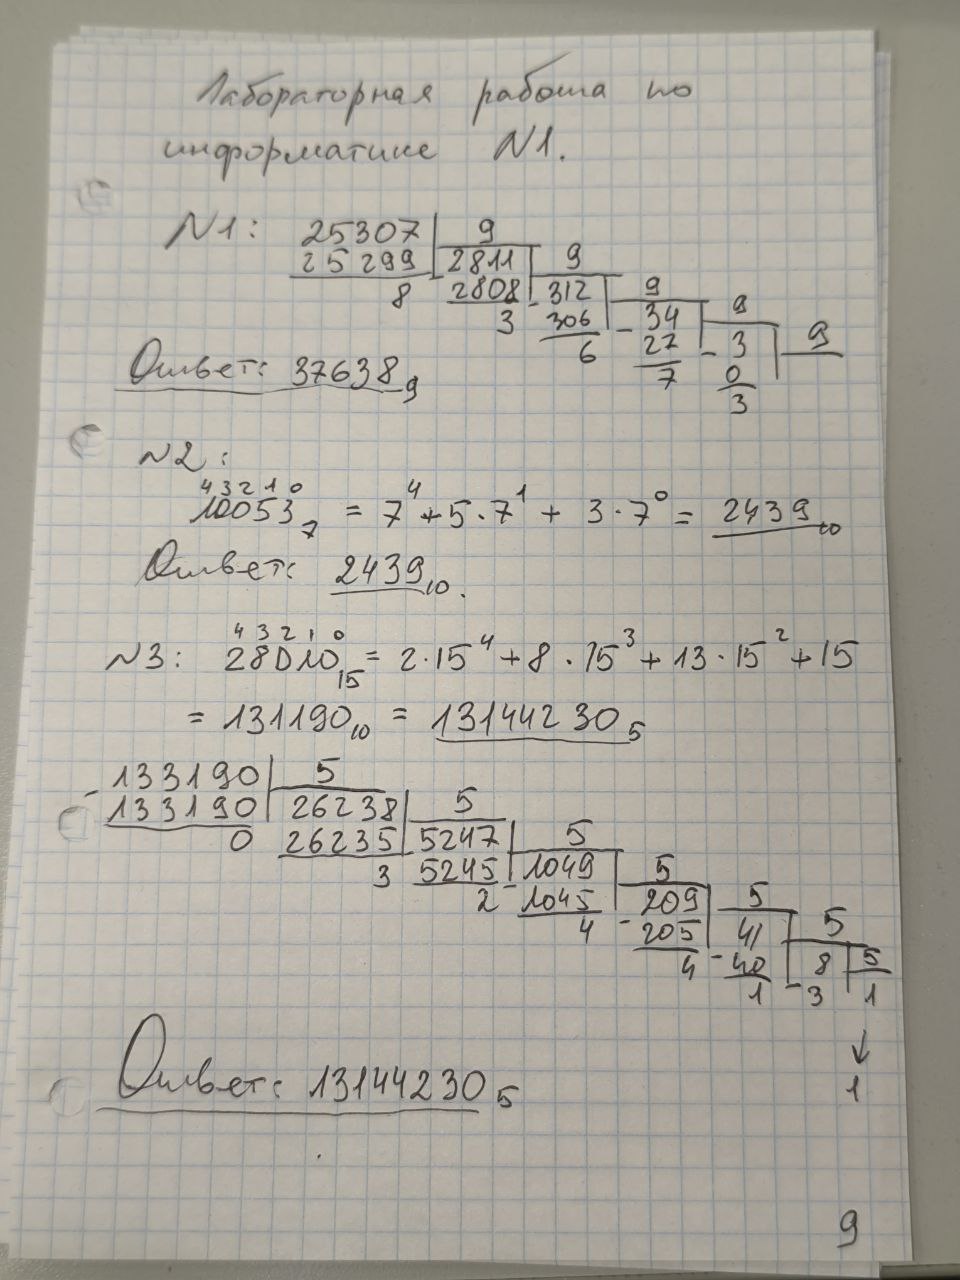 Лабораторная работа по
информатике N1.
N1: 25307 9
25299 2811 9
8 2808 312 9
3 306 34 9
6 27 3 9
7 0
3
Ответ: 37638₉
N2:
4 3 2 1 0
10053₇ = 7⁴ + 5·7¹ + 3·7⁰ = 2439₁₀
Ответ: 2439₁₀.
4 3 2 1 0
N3: 28D10₁₅ = 2·15⁴ + 8·15³ + 13·15² + 15
= 131190₁₀ = 13144230₅
- 133190 5
133190 26238 5
0 26235 5247 5
3 5245 - 1049 5
2 1045 - 209 5
4 205 - 41 5
4 40 - 8 5
1 3 1
↓
1
Ответ: 13144230₅
9